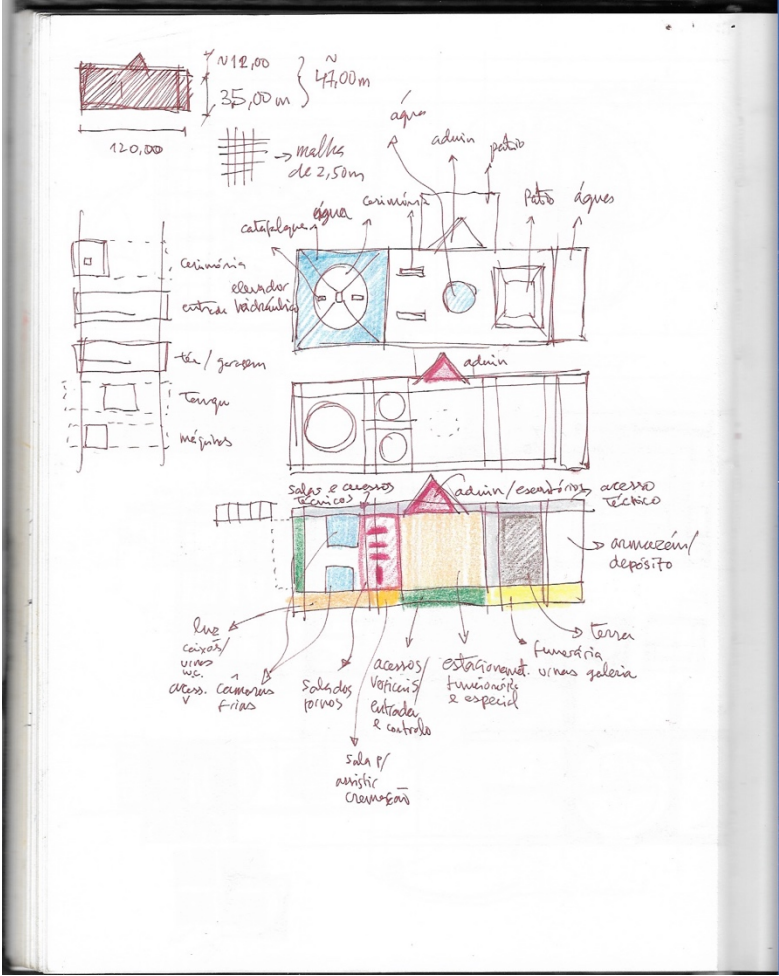 ~12,00
35,00 m
~47,00 m
120,00
malha
de 2,50m
água
admin
pátio
cerimónia
água
catafalque
Pátio
águas
cerimónia
elevador
hidráulico
entrada
téc/garagem
Tanque
máquinas
admin
salas e acessos
técnicos
admin/escritórios
acesso
técnico
armazém/
depósito
luz
caixões/
urnas
w.c.
acess.
câmaras
frias
sala dos
fornos
acessos/
verticais/
entrada
e controlo
estacionament.
funcionários
e especial
funerária
urnas galeria
terra
sala p/
assistir
cremação